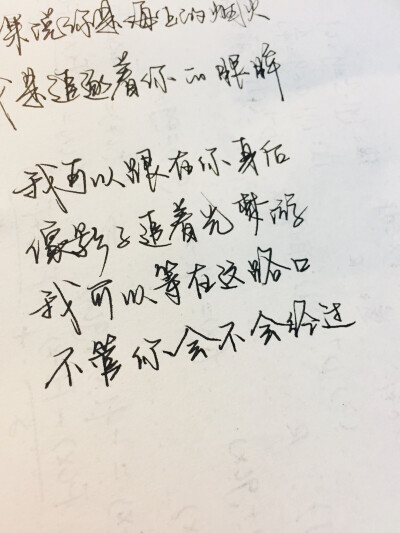 果说你是海上的烟火
我是追逐着你的眼眸
我可以跟在你身后
像影子追着光梦游
我可以等在这路口
不管你会不会经过